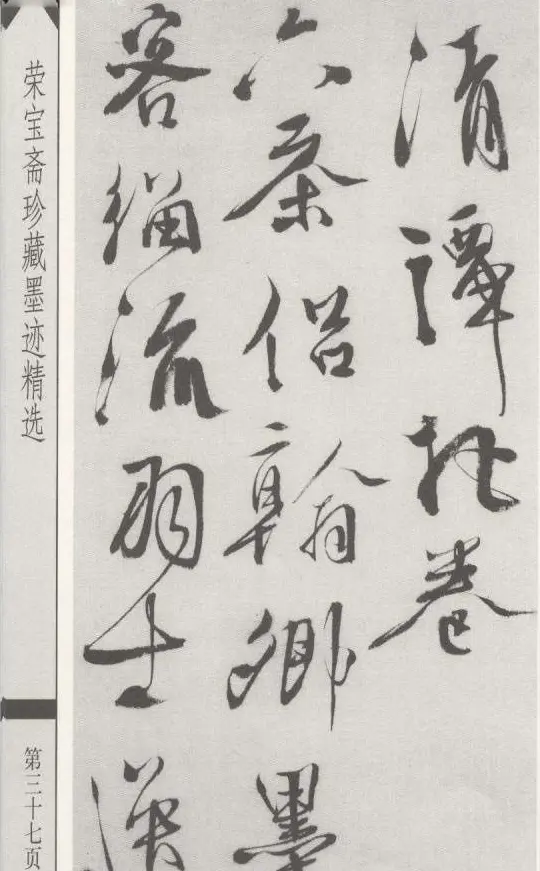 清譚把卷
六茶侶翰卿墨
客緇流羽士
荣宝斋珍藏墨迹精选
第三十七页